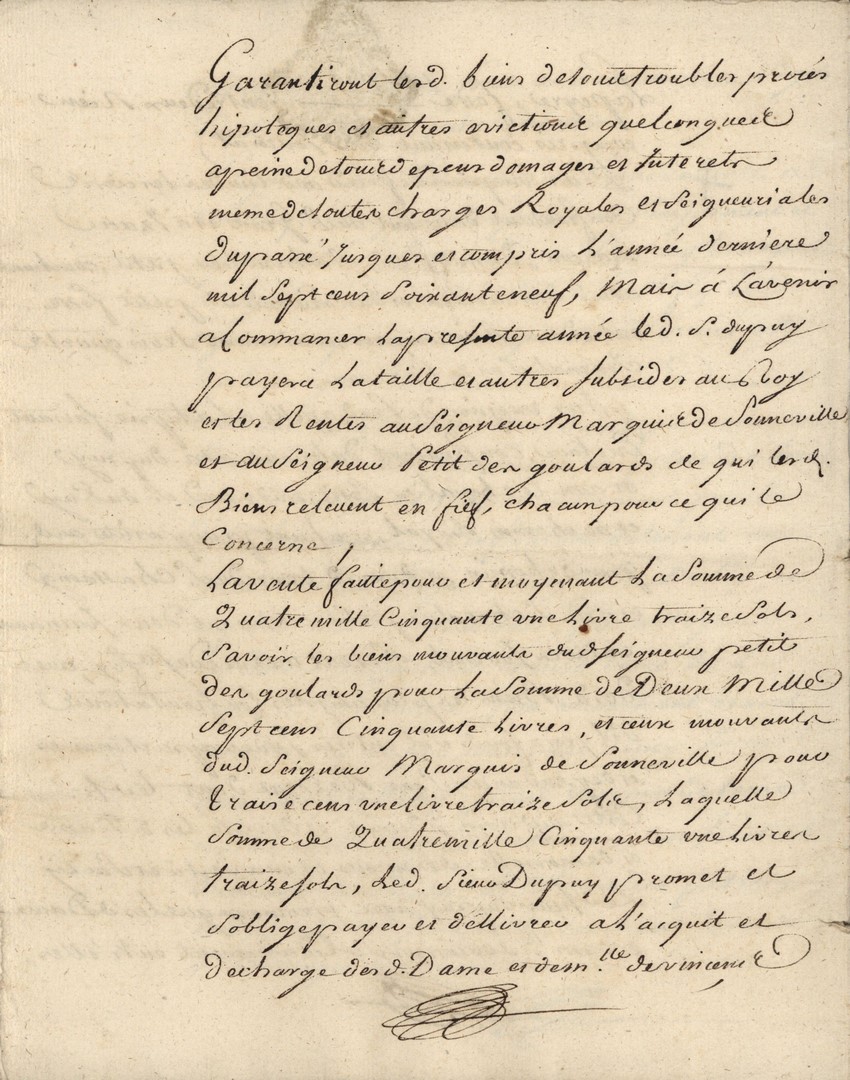 Garantiront lesd. biens de tous troubles procés
hipoteques et autres evictions quelconques
a peine de tous depens domages et Interets
meme de toutes charges Royales et Seigneuriales
du passé Jusques et compris L'année derniere
mil Sept cens Soixante neuf, Mais á L'avenir
a Commancer La presente année led. S. dupuy
payera La taille et autres subsides au Roy
et les Rentes au Seigneur Marquis de Sonneville
et au Seigneur Petit des goulards de qui lesd.
Biens relevent en fief, chacun pour ce qui le
Concerne,
La vente faitte pour et moyenant La Somme de
Quatre mille Cinquante une Livre traize Sols,
Savoir les biens mouvants dud seigneur petit
des goulards pour La Somme de Deux Mille
Sept cens Cinquante Livres, et ceux mouvants
dud. Seigneur Marquis de Sonneville pour
traise cens une livre traize Sols, Laquelle
Somme de Quatre mille Cinquante une Livres
traize sols, Led. Sieur Dupuy promet et
s'oblige payer et dellivrer a L'acquit et
decharge des d. Dame et dem.lle de vincens